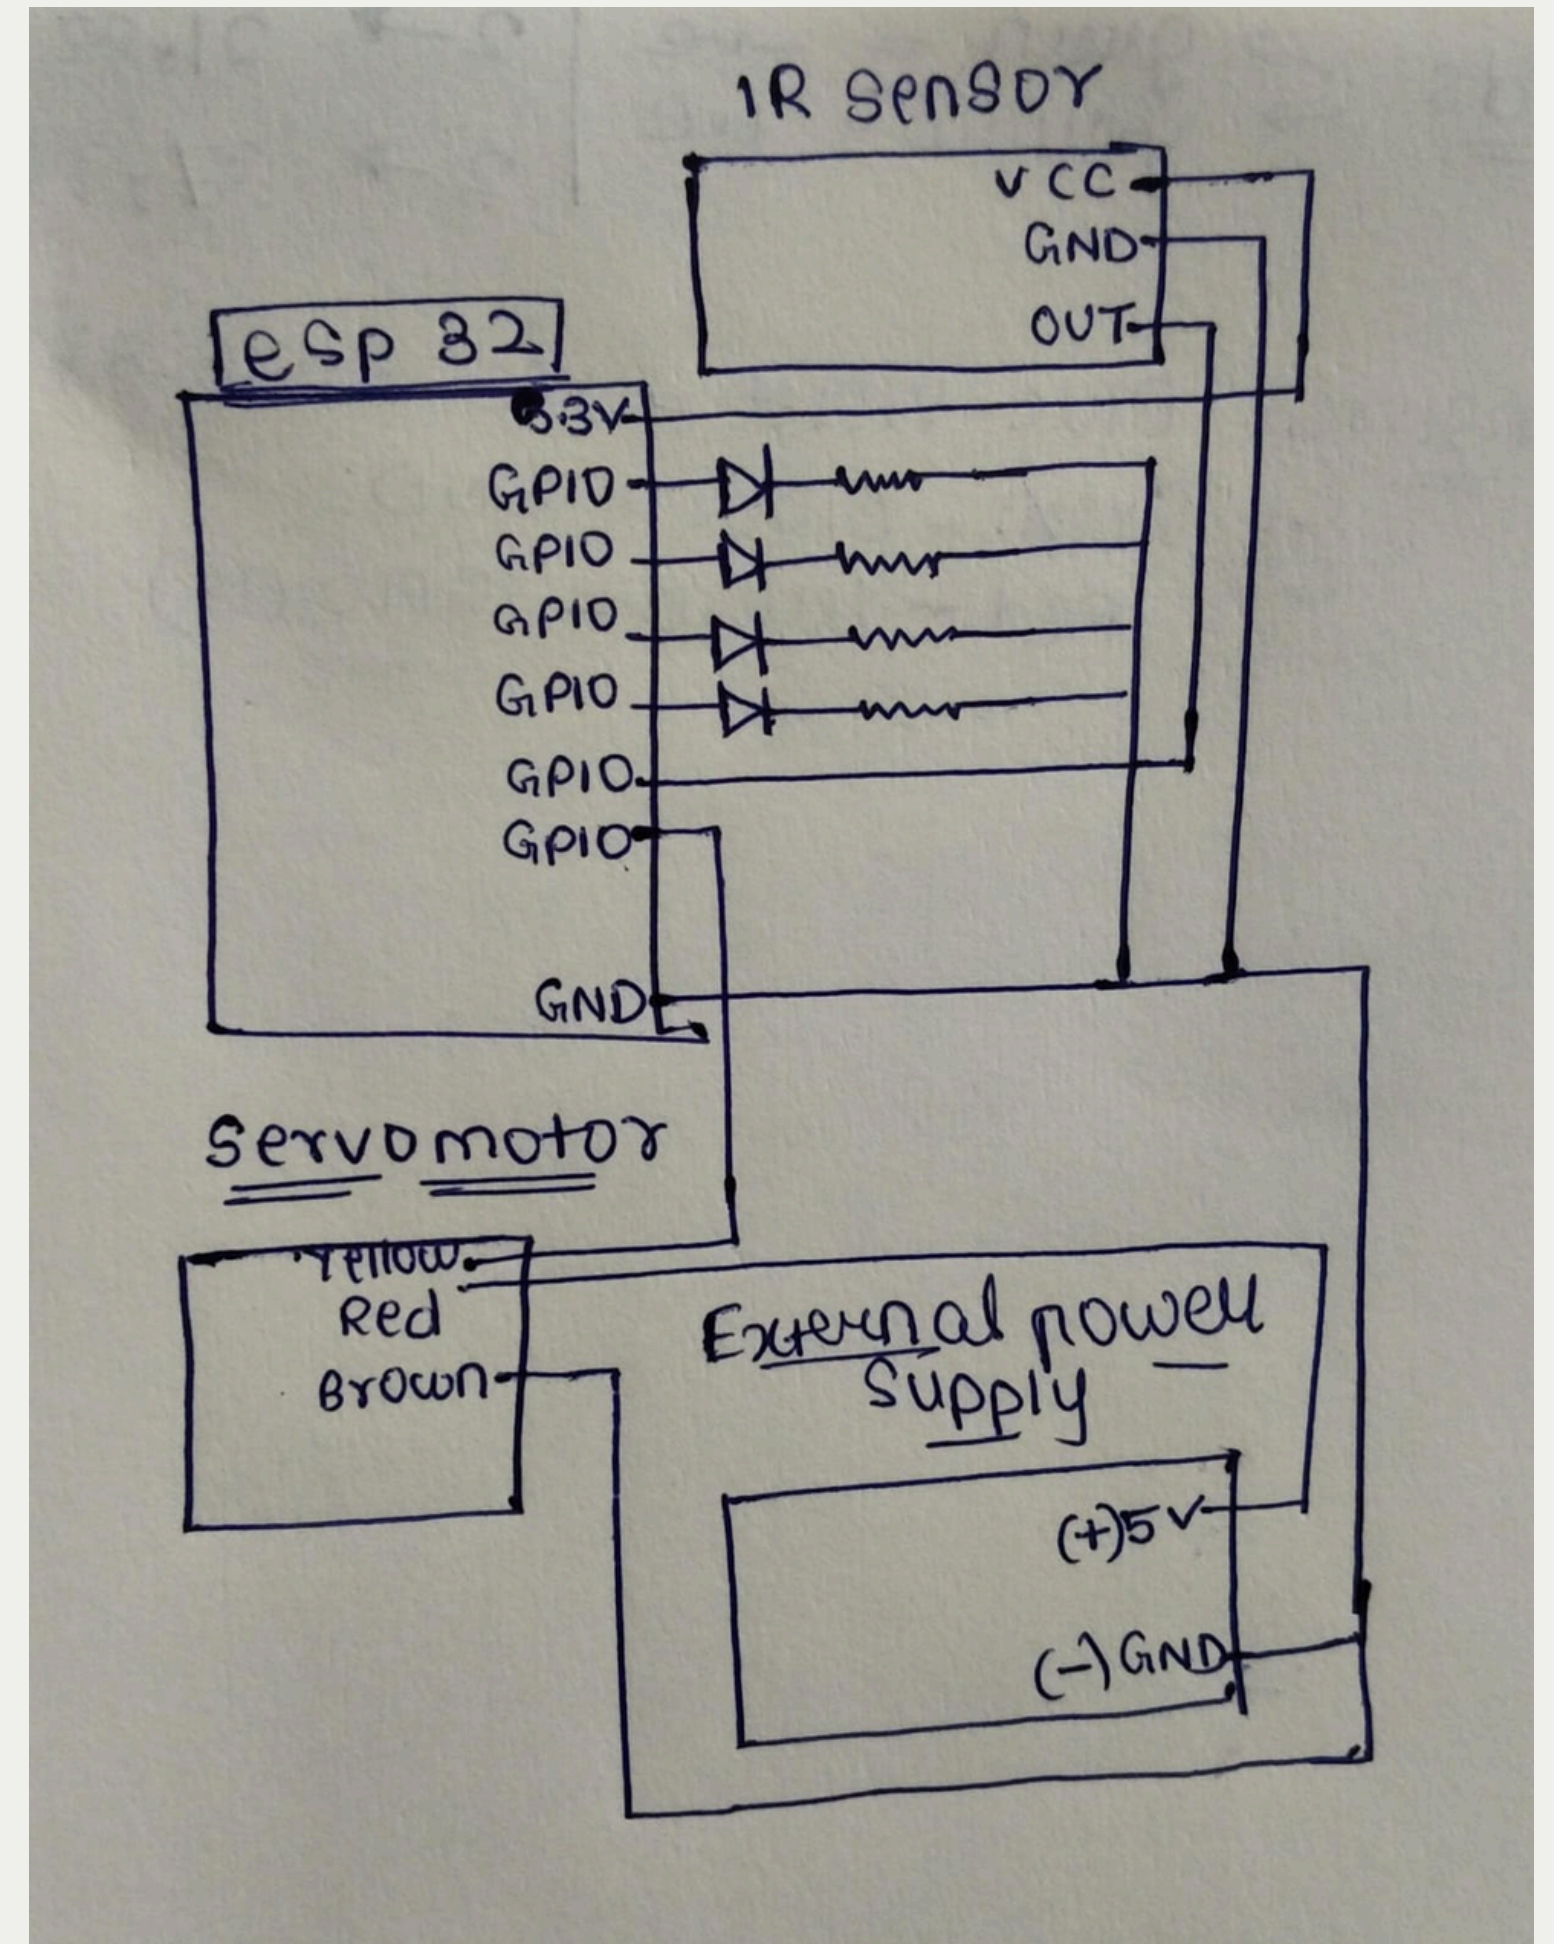 IR sensor
VCC
GND
OUT
esp 32
3.3V
GPIO
GPIO
GPIO
GPIO
GPIO
GPIO
GND
Servo motor
Yellow
Red
Brown
External power
Supply
(+)5V
(-)GND